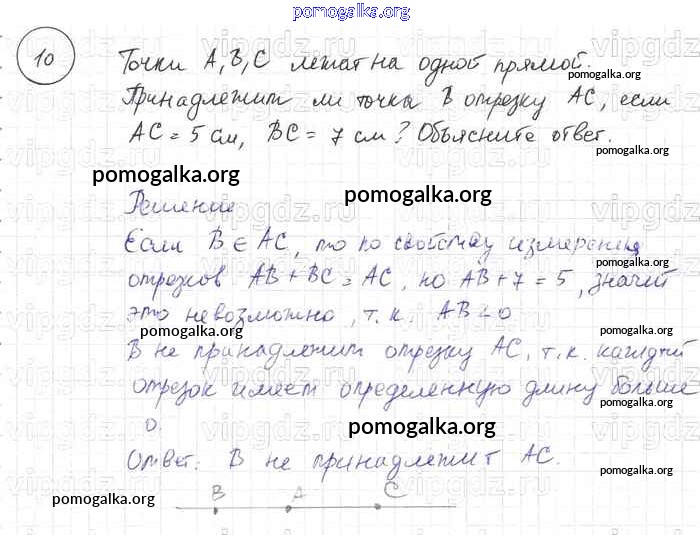 pomogalka.org
10
Точки A, B, C лежат на одной прямой.
pomogalka.org
Принадлежит ли точка B отрезку AC, если
AC = 5 см, BC = 7 см? Объясните ответ.
pomogalka.org
pomogalka.org
pomogalka.org
Решение
Если B ∈ AC, то по свойству измерения
pomogalka.org
отрезков AB + BC = AC, но AB + 7 = 5, значит
это невозможно, т.к. AB < 0
pomogalka.org
pomogalka.org
B не принадлежит отрезку AC, т.к. каждый
отрезок имеет определенную длину больше
pomogalka.org
0.
pomogalka.org
Ответ: B не принадлежит AC.
pomogalka.org
pomogalka.org
B A C